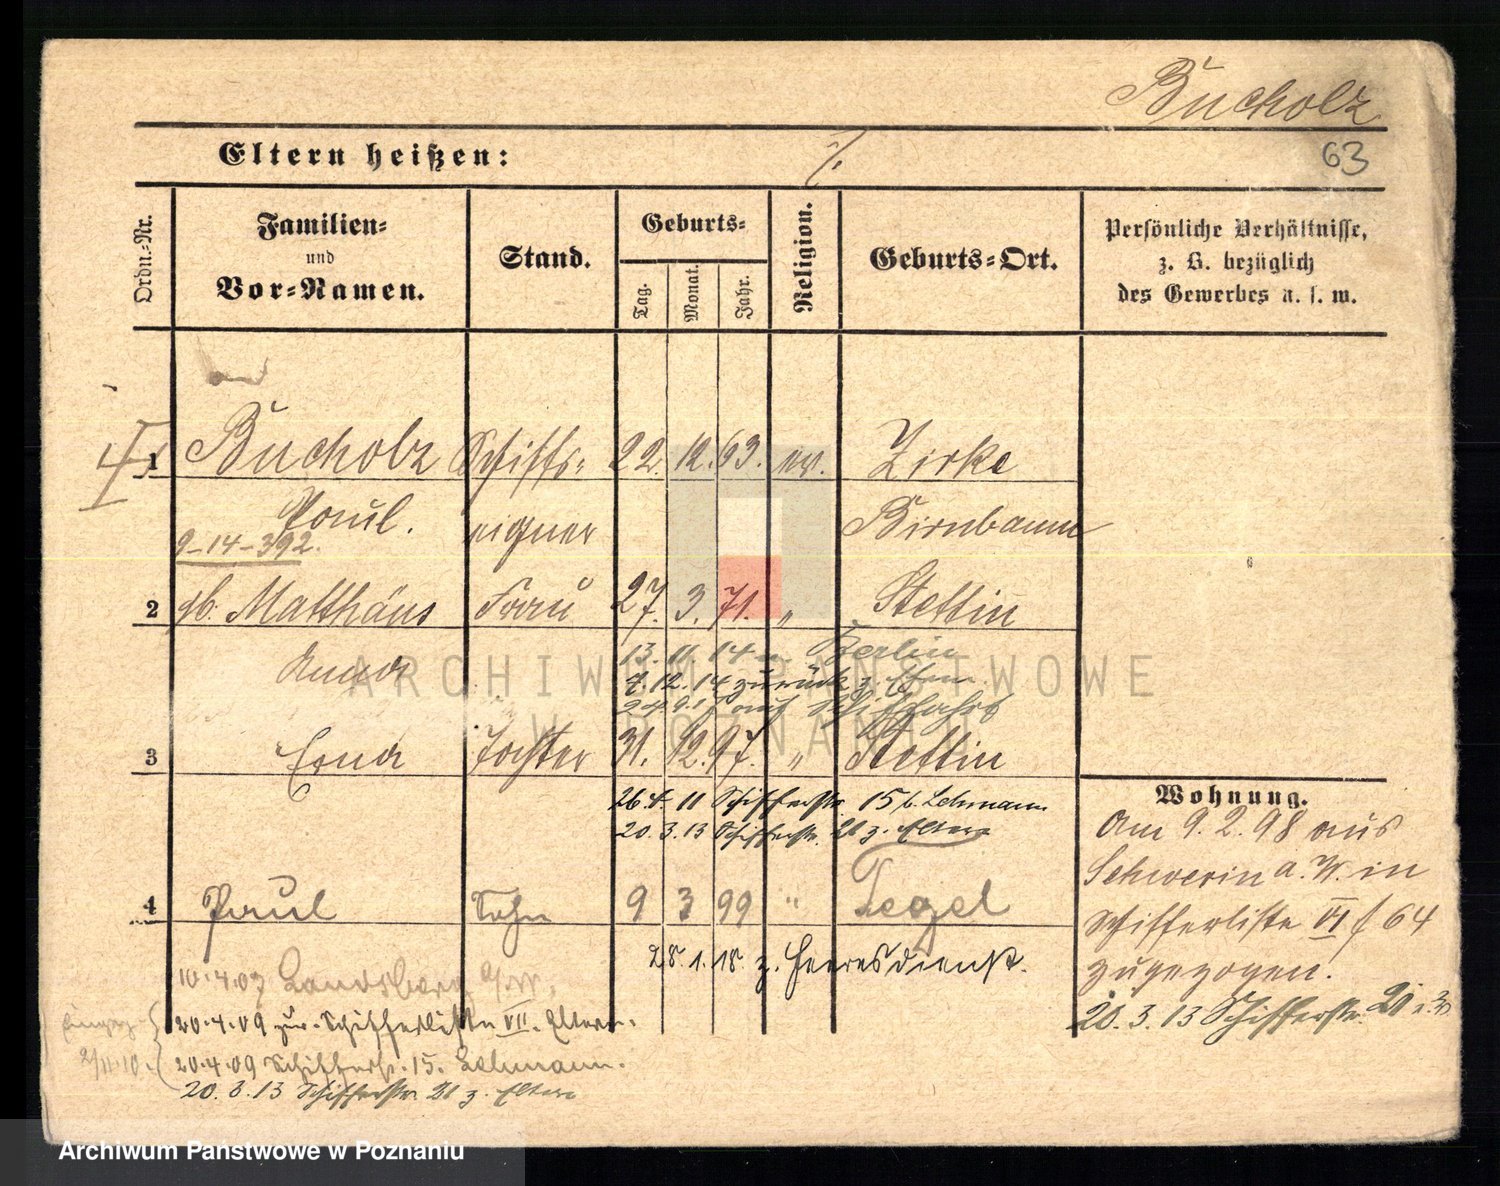 Bucholz
Eltern heißen: ./.
63
Ordn.-Nr.
Familien-
und
Vor-Namen.
Stand.
Geburts-
Tag.
Monat.
Jahr.
Religion.
Geburts-Ort.
Persönliche Verhältnisse,
z. B. bezüglich
des Gewerbes u. s. w.
1 Bucholz Schiffs- 22. 12. 63. ev. Zirke
Paul. eigner Birnbaum
9-14-392.
2 gb. Matthäus Frau 27. 3. 71. " Stettin
Anna
13. 11. 14 n. Berlin
7. 12. 14 zurück z.
auf Schiffahrt
3 Erna Tochter 31. 12. 97. " Stettin
26. 4. 11 Schifferstr. 15 b. Lehmann
20. 3. 13 Schifferstr. 21 z. Eltern
4 Paul Sohn 9 3 99 " Tegel
28. 1. 18. z. Heeresdienst.
10. 4. 07 Landsberg a/W.
20. 4. 09 zur Schifferliste VII. Eltern.
2/11.10.
20. 4. 09 Schifferstr. 15. Lehmann.
20. 3. 13 Schifferstr. 21 z. Eltern
Wohnung.
Am 9. 2. 98 aus
Schwerin a. W. in
Schifferliste VI f 64
zugezogen.
20. 3. 13 Schifferstr. 21
ARCHIWUM PAŃSTWOWE
W POZNANIU
Archiwum Państwowe w Poznaniu